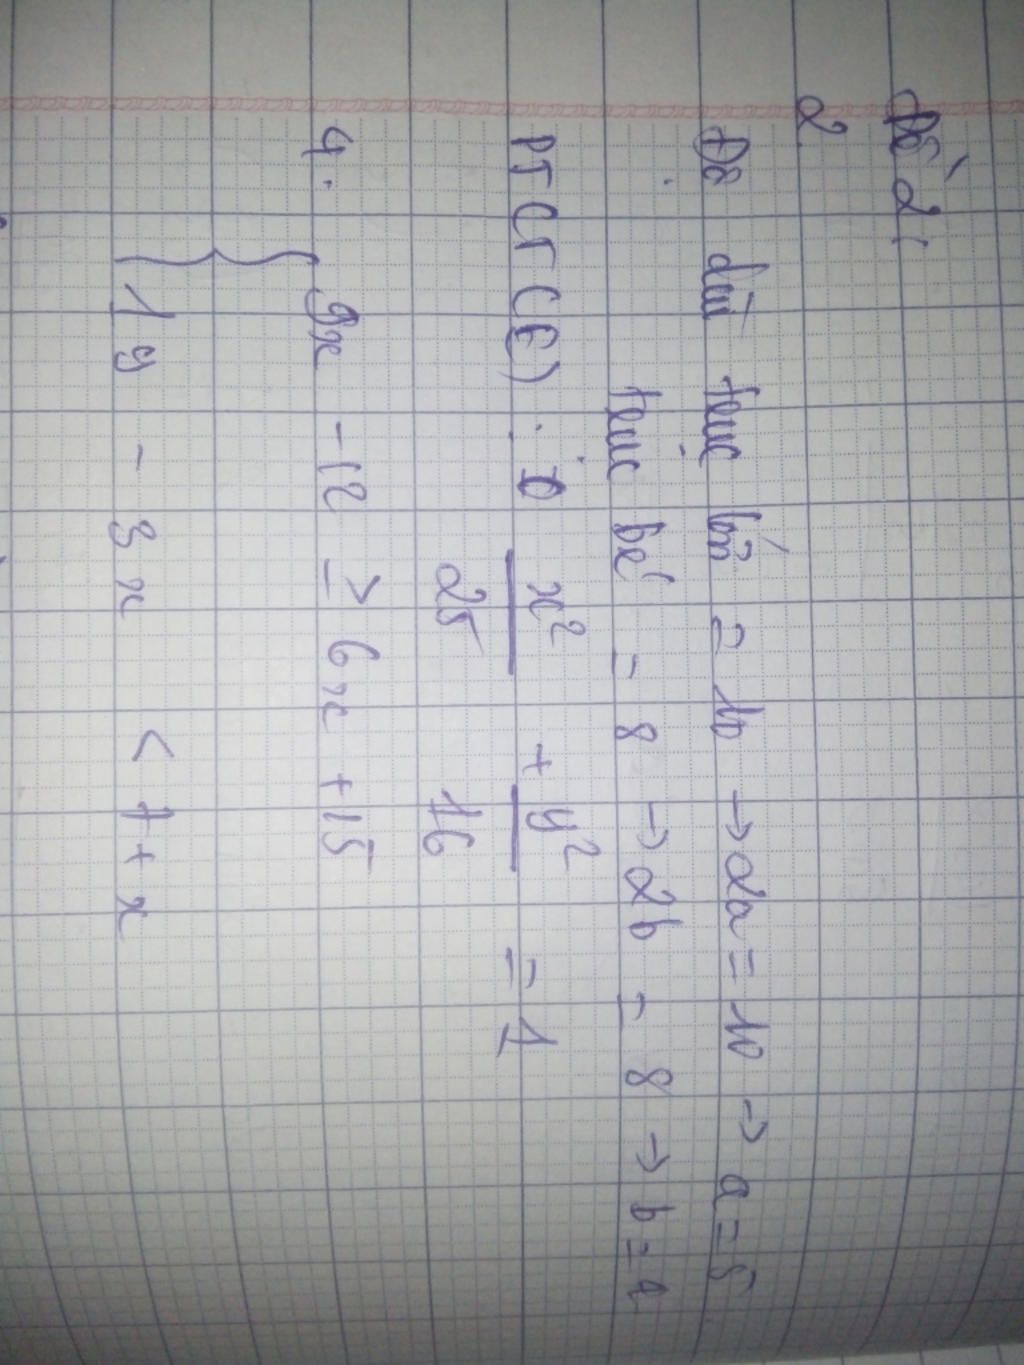 Đề 2:
2.
Độ dài trục lớn = 10 → 2a = 10 → a = 5
trục bé = 8 → 2b = 8 → b = 4
PTCT (E) : x²/25 + y²/16 = 1
4. { 9x - 12 ≥ 6x + 15
1y - 3x < 1 + x